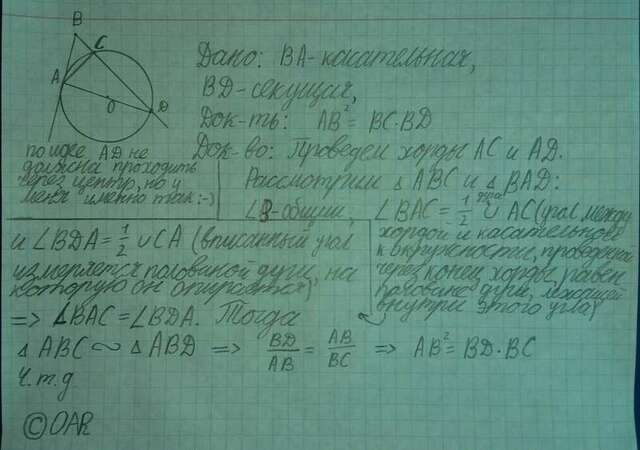 B
C
A
O
D
Дано: BA - касательная,
BD - секущая,
Док-ть: AB² = BC·BD
Док-во: Проведем хорды AC и AD.
по идее AD не
должна проходить
через центр, но у
меня именно так :-)
Рассмотрим △ ABC и △ BAD:
∠B - общий, ∠BAC = 1/2 ∪ AC (угол между
хордой и касательной
к окружности, проведенной
через конец хорды равен
половине дуги, лежащей
внутри этого угла)
и ∠BDA = 1/2 ∪ CA (вписанный угол
измеряется половиной дуги, на
которую он опирается)
=> ∠BAC = ∠BDA. Тогда
△ ABC ∾ △ ABD => BD/AB = AB/BC => AB² = BD·BC
Ч.т.д
© OAR